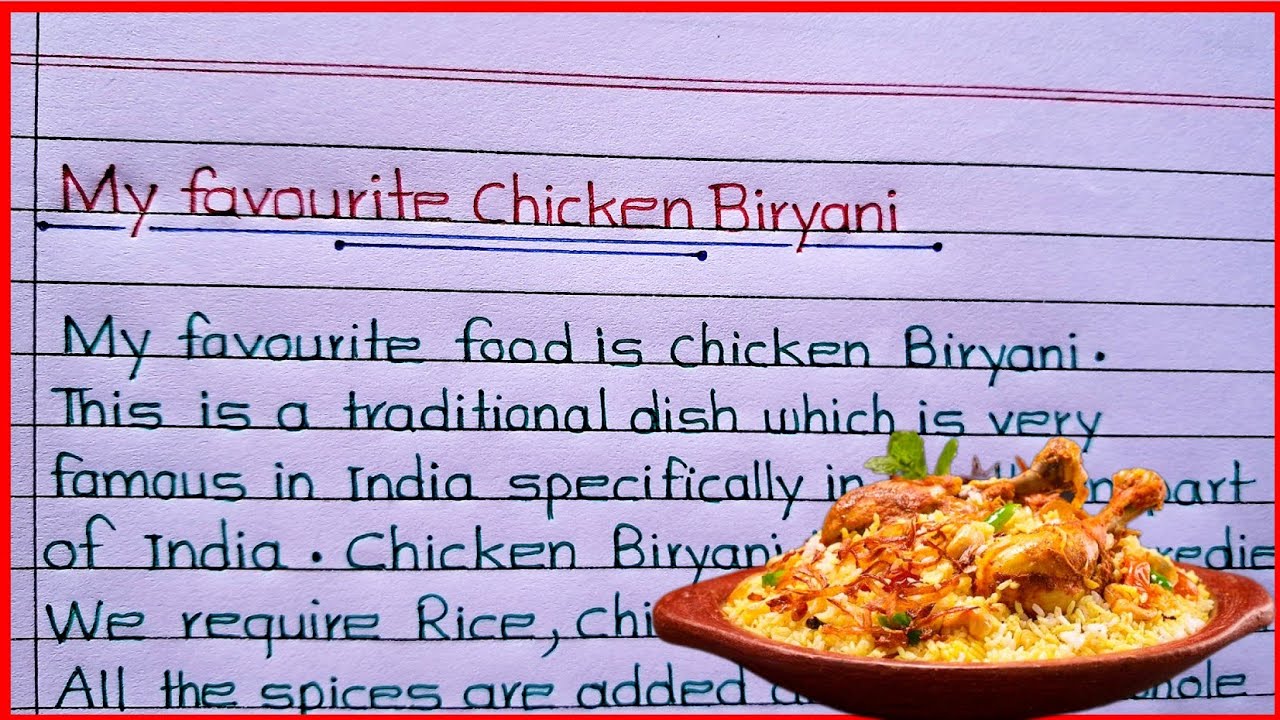 My favourite Chicken Biryani
My favourite food is chicken Biryani.
This is a traditional dish which is very
famous in India specifically in part
of India. Chicken Biryani
We require Rice,
All the spices are added